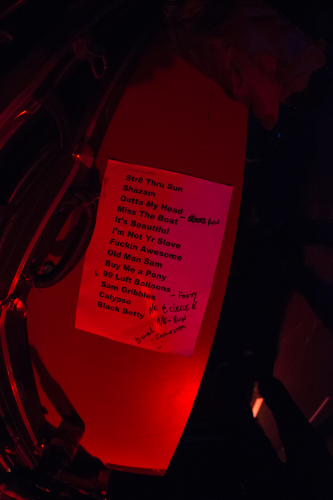 Str8 Thru Sun
Shazam
Outta My Head
Miss The Beat -
It's Beautiful
I'm Not Yr Slave
Fuckin Awesome
Old Man Sam
Buy Me a Pony
99 Luft Balloons
Sam Dribbles
Calypso
Black Betty